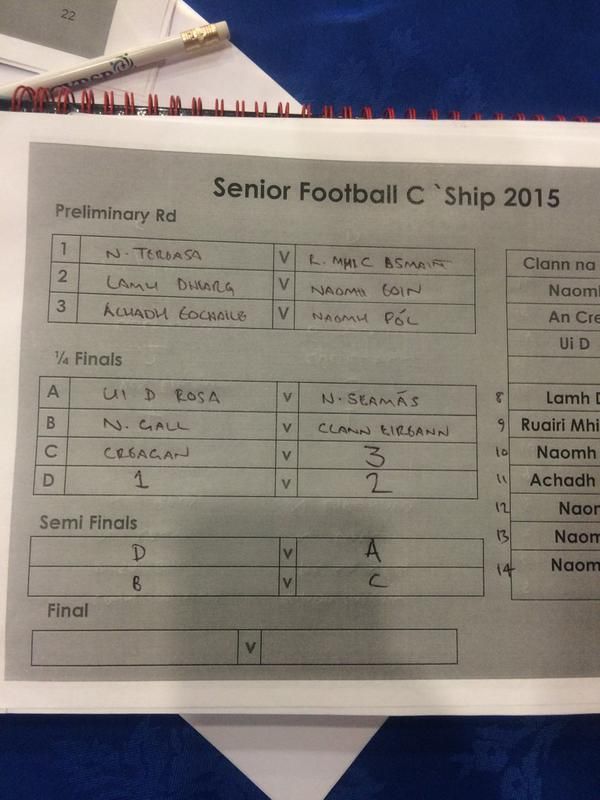 22
Senior Football C `Ship 2015
Preliminary Rd
1 N. TERGASA V R. MHIC ASMAINT
2 LAMH DHIARG V NAOMH EOIN
3 ACHADH EOCHAILE V NAOMH PÓL
¼ Finals
A UI D ROSA v N. SEAMÁS
B N. GALL v CLANN EIREANN
C CREAGAN v 3
D 1 v 2
Semi Finals
D v A
B v C
Final
V
Clann na
Naomh
An Cre
Ui D
8 Lamh D
9 Ruairi Mhi
10 Naomh
11 Achadh
12 Naom
13 Naom
14 Naom